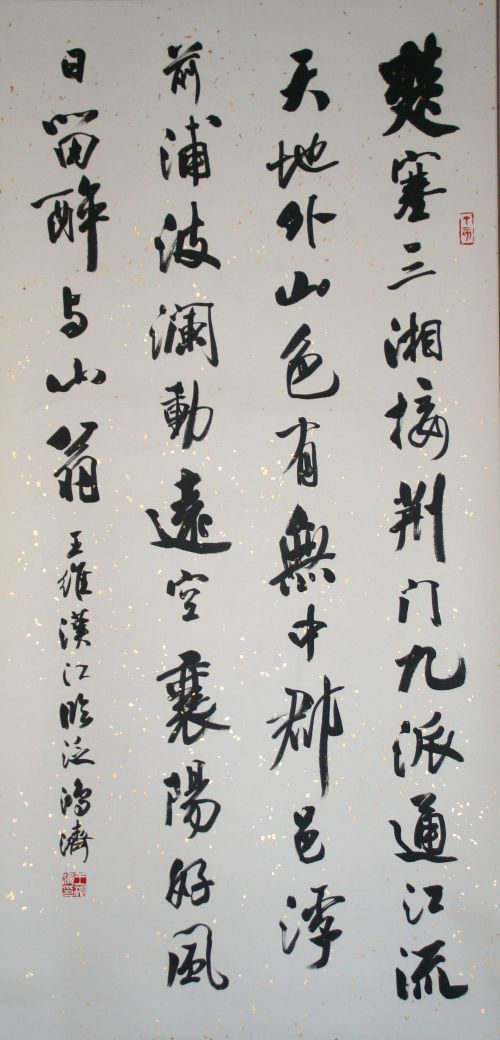 楚塞三湘接荆门九派通江流
天地外山色有無中郡邑浮
前浦波澜動遠空襄陽好風
日留醉与山翁 王维漢江临泛 鸿濟